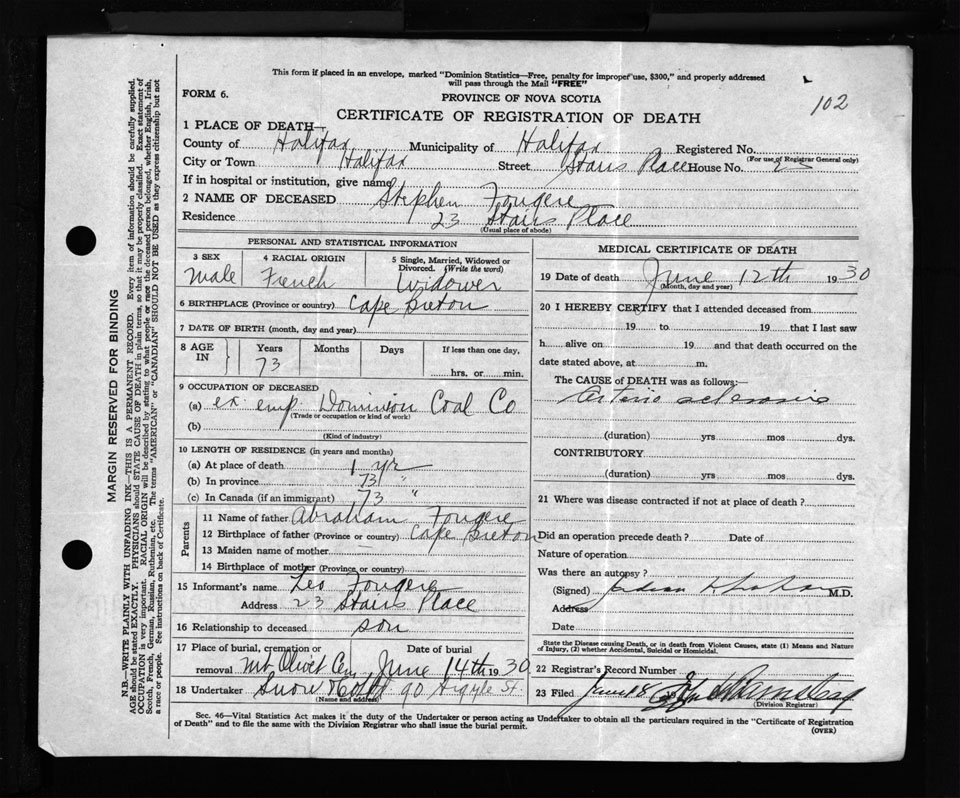 This form if placed in an envelope, marked "Dominion Statistics—Free, penalty for improper use, $300," and properly addressed
will pass through the Mail "FREE"
FORM 6.
PROVINCE OF NOVA SCOTIA
102
CERTIFICATE OF REGISTRATION OF DEATH
1 PLACE OF DEATH—
County of Halifax Municipality of Halifax Registered No.
(For use of Registrar General only)
City or Town Halifax Street Stairs Place House No.
If in hospital or institution, give name
2 NAME OF DECEASED Stephen Fougere
Residence 23 Stairs Place
(Usual place of abode)
PERSONAL AND STATISTICAL INFORMATION
3 SEX 4 RACIAL ORIGIN 5 Single, Married, Widowed or
Divorced. (Write the word)
Male French Widower
6 BIRTHPLACE (Province or country) Cape Breton
7 DATE OF BIRTH (month, day and year)
8 AGE IN Years Months Days If less than one day,
73 hrs. or min.
9 OCCUPATION OF DECEASED
(a) ex emp. Dominion Coal Co
(Trade or occupation or kind of work)
(b)
(Kind of industry)
10 LENGTH OF RESIDENCE (in years and months)
(a) At place of death 1 yr
(b) In province 73 "
(c) In Canada (if an immigrant) 73 "
Parents
11 Name of father Abraham Fougere
12 Birthplace of father (Province or country) Cape Breton
13 Maiden name of mother —
14 Birthplace of mother (Province or country)
15 Informant's name Leo Fougere
Address 23 Stairs Place
16 Relationship to deceased son
17 Place of burial, cremation or Date of burial
removal Mt Olivet Cem June 14th 1930
18 Undertaker Snow 90 Argyle St.
(Name and address)
MEDICAL CERTIFICATE OF DEATH
19 Date of death June 12th 1930
(Month, day and year)
20 I HEREBY CERTIFY that I attended deceased from
19 to 19 that I last saw
h alive on 19 and that death occurred on the
date stated above, at m.
The CAUSE of DEATH was as follows:—
Arterio sclerosis
(duration) yrs mos dys.
CONTRIBUTORY
(duration) yrs mos dys.
21 Where was disease contracted if not at place of death?
Did an operation precede death? Date of
Nature of operation
Was there an autopsy?
(Signed) M.D.
Address
Date
State the Disease causing Death, or in death from Violent Causes, state (1) Means and Nature
of Injury, (2) whether Accidental, Suicidal or Homicidal.
22 Registrar's Record Number
23 Filed
(Division Registrar)
Sec. 46—Vital Statistics Act makes it the duty of the Undertaker or person acting as Undertaker to obtain all the particulars required in the "Certificate of Registration
of Death" and to file the same with the Division Registrar who shall issue the burial permit.
(OVER)
MARGIN RESERVED FOR BINDING
N.B.—WRITE PLAINLY WITH UNFADING INK—THIS IS A PERMANENT RECORD. Every item of information should be carefully supplied.
AGE should be stated EXACTLY. PHYSICIANS should STATE CAUSE OF DEATH in plain terms, so that it may be properly classified. Exact statement of
OCCUPATION is very important. RACIAL ORIGIN will be described by stating to what people or race the deceased person belonged, whether English, Irish,
Scotch, French, German, Russian, Ruthenian, etc. The terms "AMERICAN" or "CANADIAN" SHOULD NOT BE USED as they express citizenship but not
a race or people. See instructions on back of Certificate.